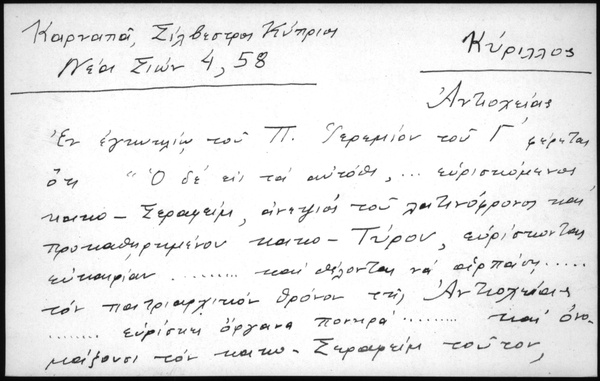 Καρναπᾶ, Σίλβεστρος Κύπριος
Νέα Σιών 4, 58
Κύριλλος
Ἀντιοχείας
Ἐν ἐγκυκλίῳ τοῦ Π. Ἱερεμίου τοῦ Γ΄ φέρεται
ὅτι "Ὁ δέ εἰς τά αὐτόθι, ... εὑρισκόμενος
κακο-Σεραφείμ, ἀνεψιός τοῦ λατινόφρονος καί
προκαθῃρημένου κακο-Τύρου, εὑρίσκοντας
εὐκαιρίαν ......... καί θέλοντας νά ἁρπάσῃ .....
τόν πατριαρχικόν θρόνον τῆς Ἀντιοχείας
........ εὑρίσκει ὄργανα πονηρά ......... καί ὀνο-
μάζουσι τόν κακο-Σεραφείμ τοῦτον,